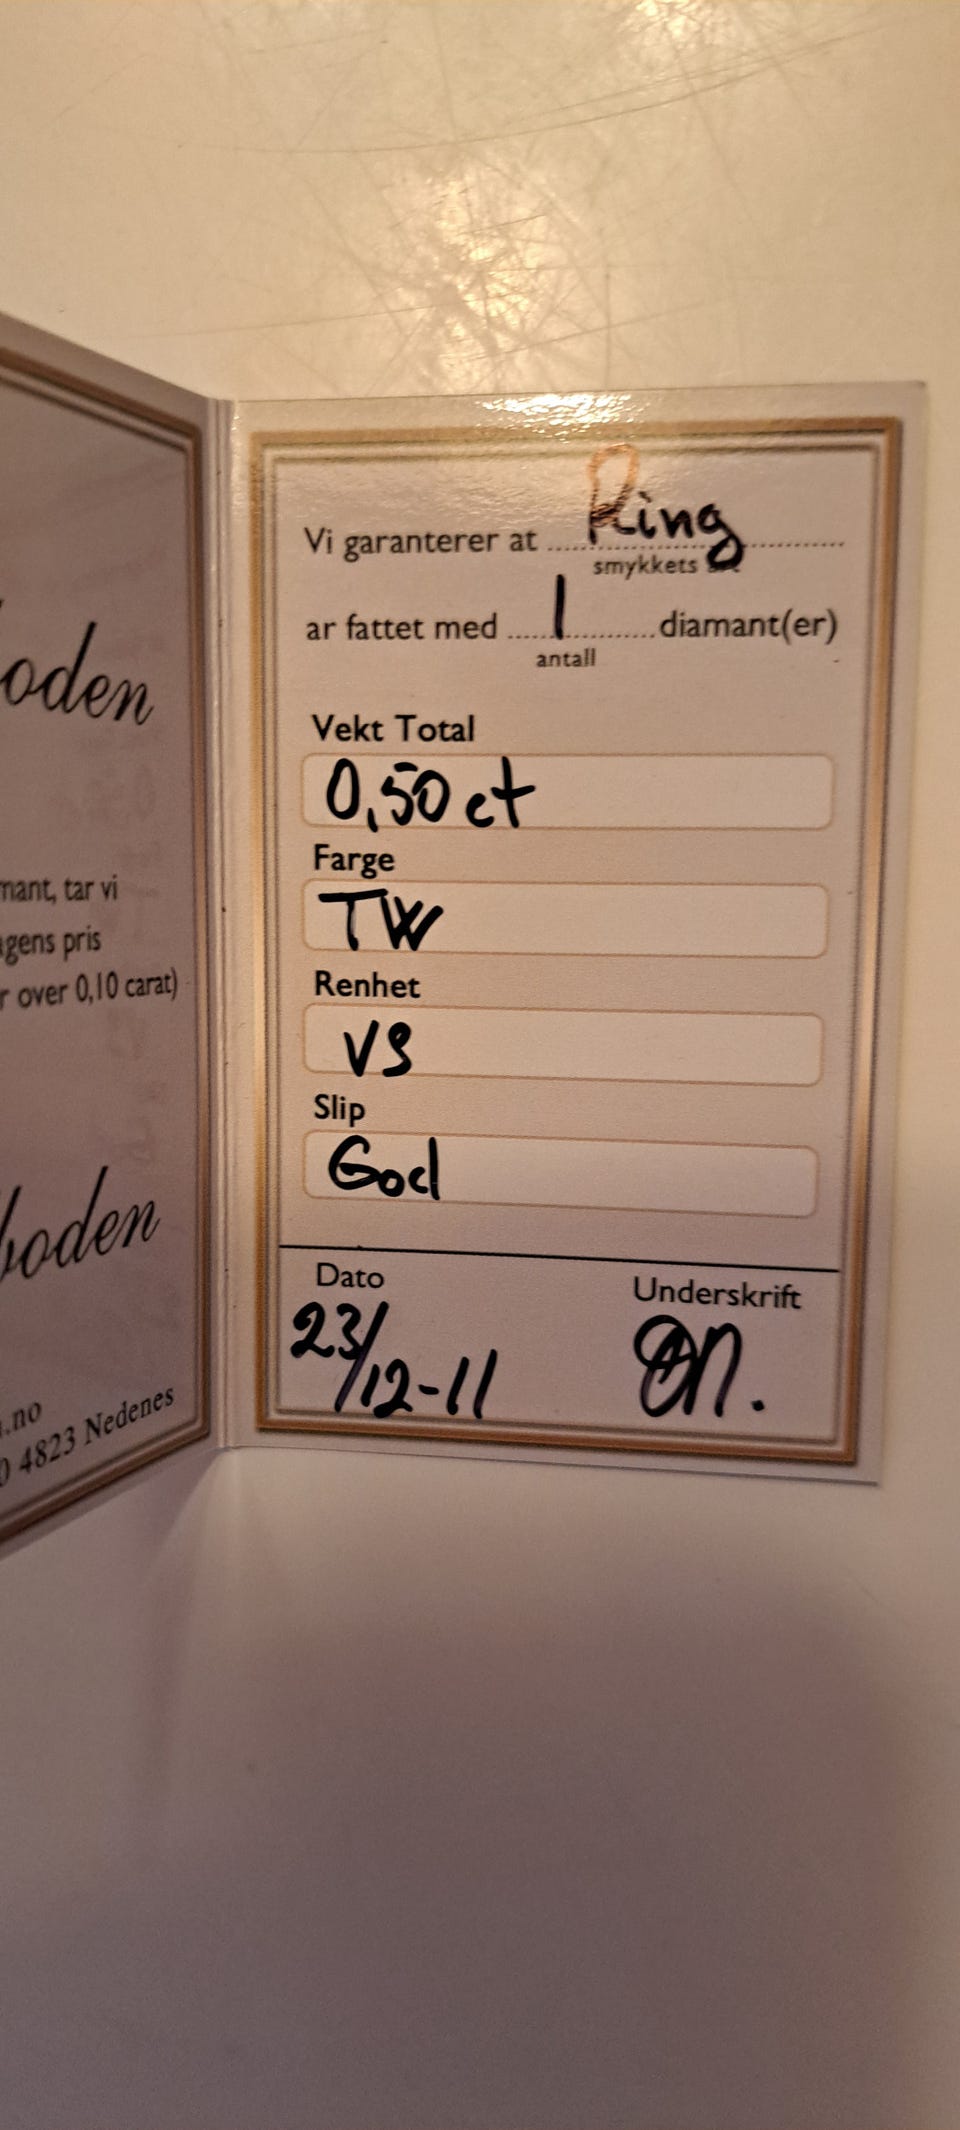 oden
mant, tar vi
gens pris
r over 0,10 carat)
boden
.no
4823 Nedenes
Vi garanterer at Ring
smykkets
ar fattet med 1 diamant(er)
antall
Vekt Total
0,50 ct
Farge
TW
Renhet
VS
Slip
God
Dato
Underskrift
23/12-11